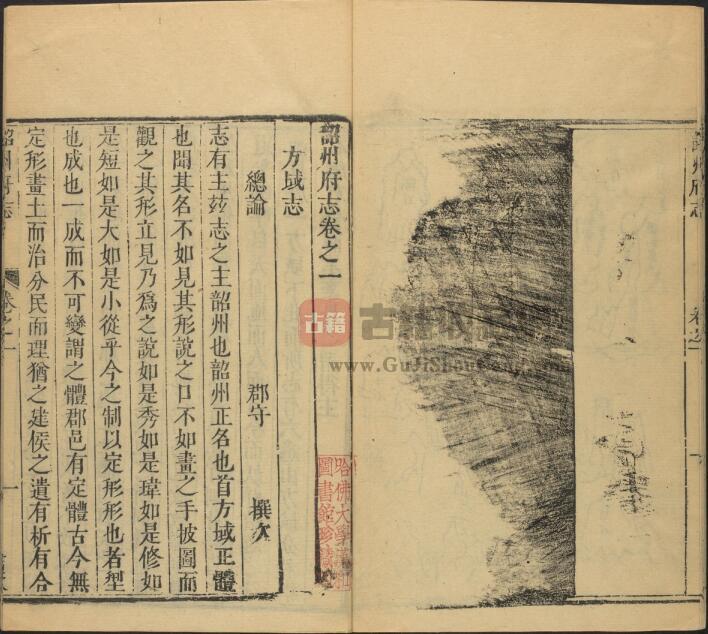 韶州府志卷之一
方域志
總論
郡守
撰次
志有主玆志之主韶州也韶州正名也首方域正體
也聞其名不如見其形說之口不如畫之手披圖而
觀之其形立見乃爲之說如是秀如是瑋如是修如
是短如是大如是小從乎今之制以定形形也者型
也成也一成而不可變謂之體郡邑有定體古今無
定形畫土而治分民而理猶之建侯之遺有析有合
韶州府志
卷之一
一
州府志
卷之
哈佛大學漢和
圖書館珍藏
古籍
www.GuJiShou